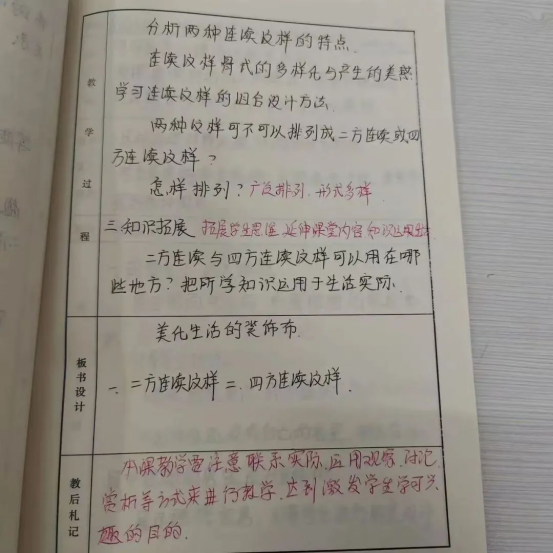 分析两种连续纹样的特点.
连续纹样骨式的多样化与产生的美感
学习连续纹样的组合设计方法.
两种纹样可不可以排列成二方连续或四
方连续纹样？
怎样排列？广泛排列.形式多样
三.知识拓展 拓展学生思维 延伸课堂内容
二方连续与四方连续纹样可以用在哪
些地方？把所学知识运用于生活实际.
教学过程
美化生活的装饰布.
一、二方连续纹样 二、四方连续纹样.
板书设计
本课教学要注意联系实际,应用观察.讨论
赏析等方式来进行教学.达到激发学生学习兴
趣的目的.
教后札记